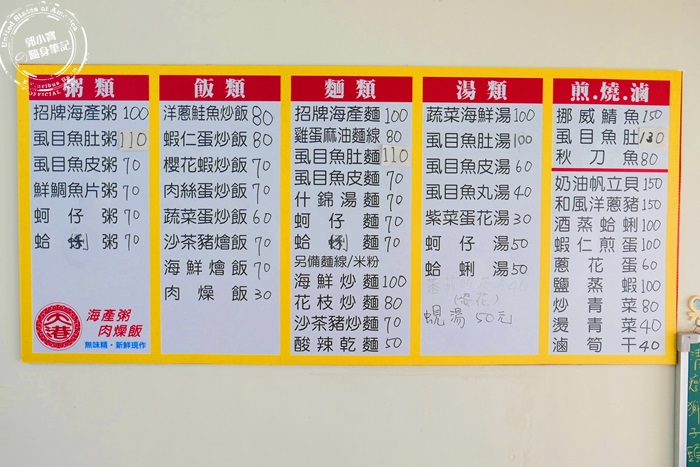 United States of America
郭小寶
隨身筆記
OFFICIAL
粥類
招牌海產粥 100
虱目魚肚粥 110
虱目魚皮粥 70
鮮鯛魚片粥 70
蚵仔粥 70
蛤蜊粥 70
大港
海產粥
肉燥飯
無味精・新鮮現作
飯類
洋蔥鮭魚炒飯 80
蝦仁蛋炒飯 80
櫻花蝦炒飯 70
肉絲蛋炒飯 70
蔬菜蛋炒飯 60
沙茶豬燴飯 70
海鮮燴飯 70
肉燥飯 30
麵類
招牌海產麵 100
雞蛋麻油麵線 80
虱目魚肚麵 110
虱目魚皮麵 70
什錦湯麵 70
蚵仔麵 70
蛤蜊麵 70
另備麵線/米粉
海鮮炒麵 100
花枝炒麵 80
沙茶豬炒麵 70
酸辣乾麵 50
湯類
蔬菜海鮮湯 100
虱目魚肚湯 100
虱目魚皮湯 60
虱目魚丸湯 40
紫菜蛋花湯 30
蚵仔湯 50
蛤蜊湯 50
蜆湯 50元
煎.燒.滷
挪威鯖魚 150
虱目魚肚 130
秋刀魚 80
奶油帆立貝 150
和風洋蔥豬 150
酒蒸蛤蜊 100
蝦仁煎蛋 100
蔥花蛋 60
鹽蒸蝦 100
炒青菜 80
燙青菜 40
滷筍干 40
清燉獅子頭